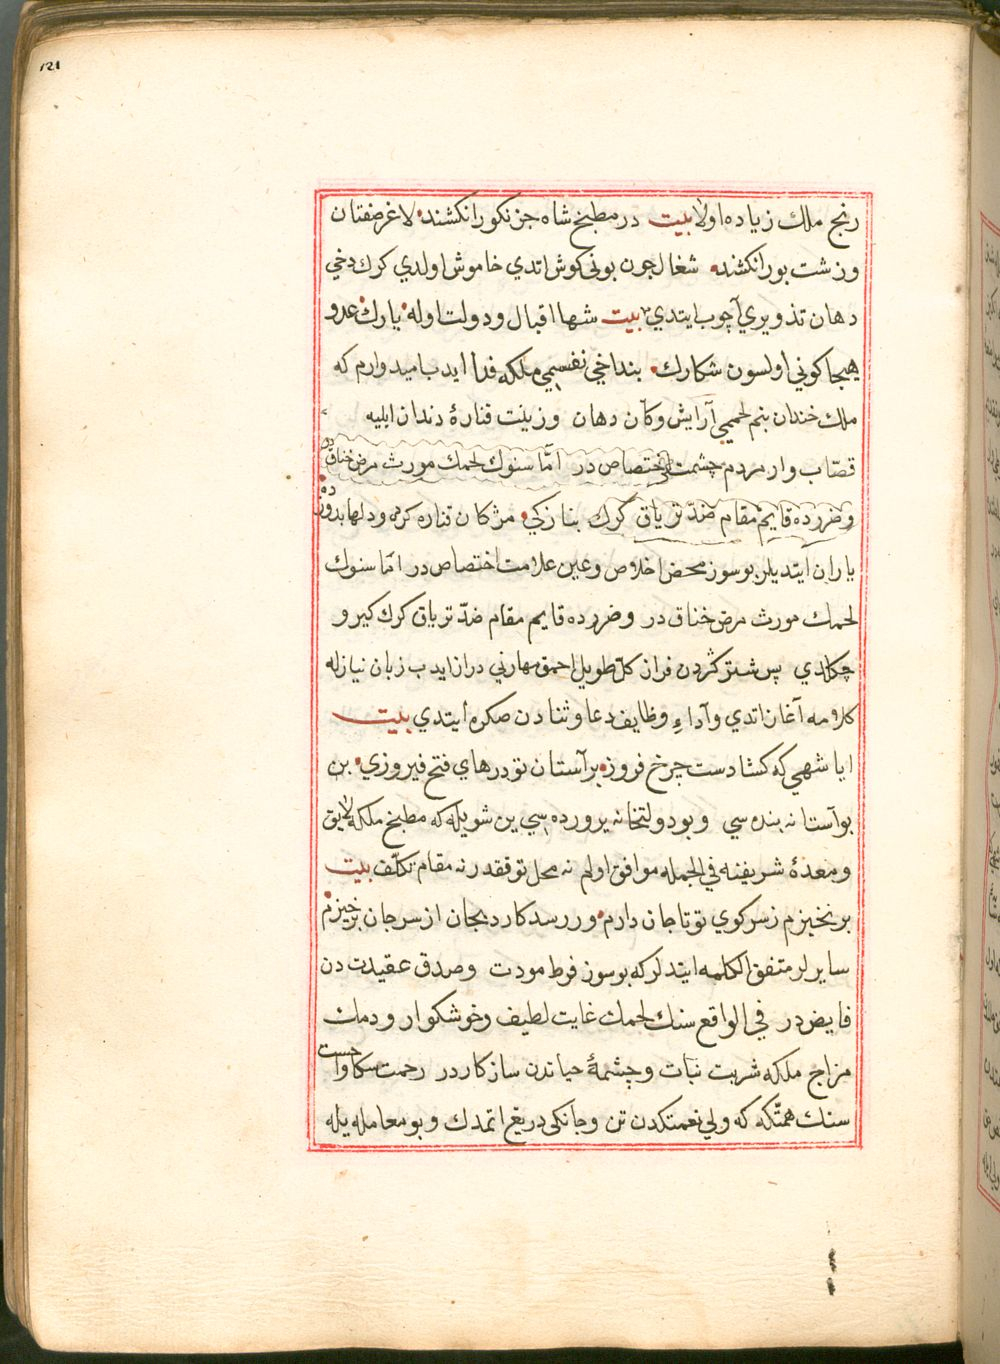 ١٢١
رنج ملك زياده اولا بيت در مطبخ شاه جز نكورا نكشند لاغر صفتان
و زشت بورا نكشند شغال چون بوني كوش اتدي خاموش اولدي كرك دخي
دهان تذويري آچوب ايتدي بيت شها اقبال و دولت اوله يارك عدو
هيجا كوني اولسون شكارك بنداخي نفسيمي ملكه فدا ايدب اميدوارم كه
ملك خندان بنم لحممي آرايش وكان دهان و زينت قنارۀ دندان ايليه
قصّاب وار مردم چشمت اختصاص در امّا سنوك لحمك مورث مرض خناق در
و ضررده قايم مقام ضدّ ترياق كرك بنازكي مژكان قناره كرده و دلها بدو زد
ياران ايتديلر بو سوز محض اخلاص وعين علامت اختصاص در امّا سنوك
لحمك مورث مرض خناق در و ضررده قايم مقام ضدّ ترياق كرك كيرو
چكلدي پس شتر كردن فراز كلّ طويل احمق مهارني دراز ايدب زبان نيازله
كلامه آغاز اتدي و آداء وظايف دعا و ثنادن صكره ايتدي بيت
ايا شهي كه كشادست چرخ فروزه بر آستان تو درهاي فتح فيروزي بن
بو آستانه بنده سي و بو دولتخانه پرورده سي ين شويله كه مطبخ ملكه لايق
و معدۀ شريفنه في الجمله موافق اولم نه محل توقفدر نه مقام تكلّف بيت
برنخيزم ز سر كوي تو تا جان دارم ور رسد كارد بجان از سر جان برخيزم
سايرلر متفق الكلمه ايتدلر كه بو سوز فرط مودت و صدق عقيدت دن
فايض در في الواقع سنك لحمك غايت لطيف و خوشكوار و دمك
مزاج ملكه شربت نبات و چشمۀ حياتدن سازكار در رحمت سكا واحست
سنك همّتكه كه ولي نعمتكدن تن و جانكي دريغ اتمدك و بو معامله يله